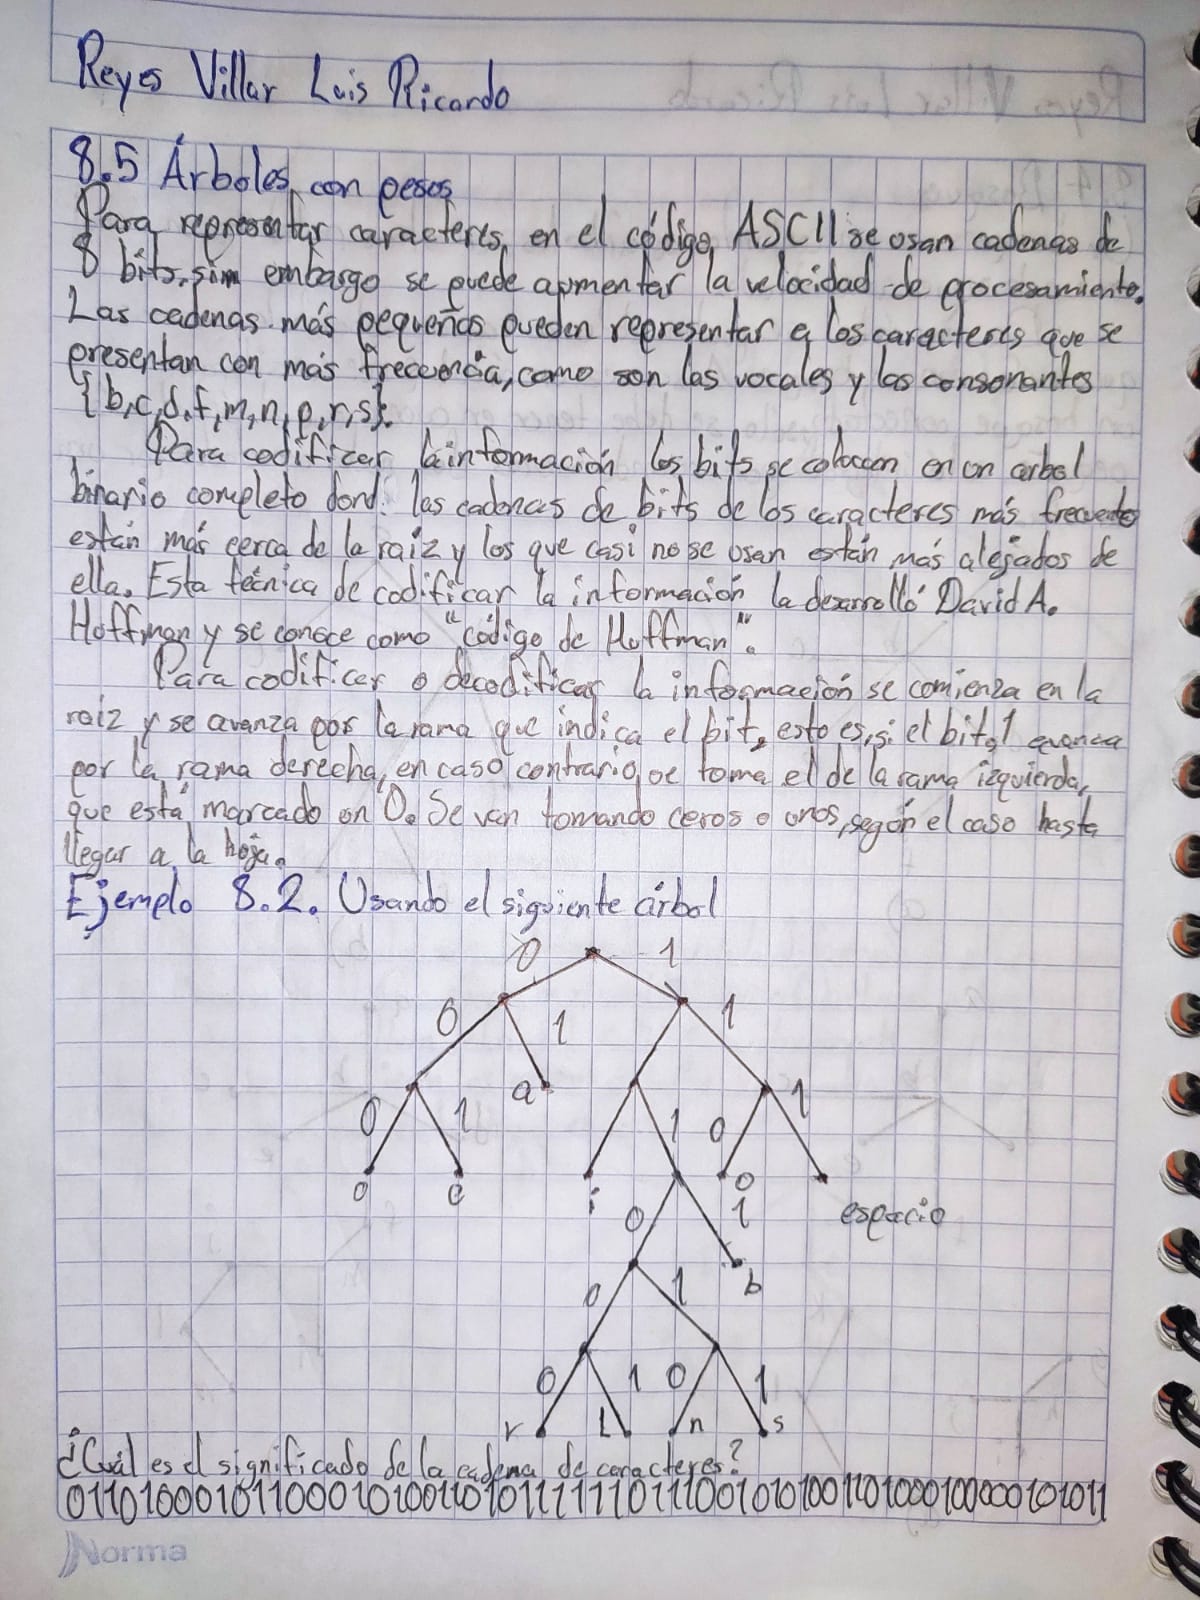 Reyes Villar Luis Ricardo
8.5 Árboles con pesos
Para representar caracteres, en el código ASCII se usan cadenas de
8 bits, sin embargo se puede aumentar la velocidad de procesamiento.
Las cadenas más pequeñas pueden representar a los caracteres que se
presentan con más frecuencia, como son las vocales y las consonantes
{b,c,d,f,m,n,p,r,s}.
Para codificar la información los bits se colocan en un arbol
binario completo donde las cadenas de bits de los caracteres más frecuentes
están más cerca de la raiz y los que casi no se usan están más alejados de
ella. Esta técnica de codificar la información la desarrolló David A.
Hoffman y se conoce como "código de Huffman".
Para codificar o decodificar la información se comienza en la
raiz y se avanza por la rama que indica el bit, esto es, si el bit 1 avanza
por la rama derecha, en caso contrario, se toma el de la rama izquierda,
que está marcado en 0. Se van tomando ceros o unos, según el caso hasta
llegar a la hoja.
Ejemplo 8.2. Usando el siguiente árbol
0 1
0 1 1
a
0 1 1 0 1
o e i o
0 1 espacio
b
0 1
0 1 0 1
r L n s
¿Cuál es el significado de la cadena de caracteres?